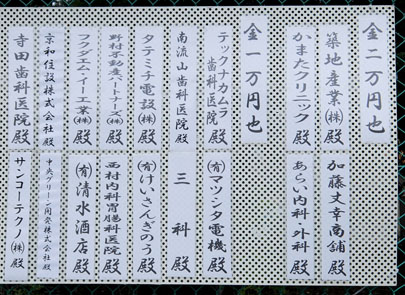 金二万円也
築地産業㈱殿
加藤丈幸商舗殿
かまたクリニック殿
あらい内科・外科殿
金一万円也
テックナカムラ歯科医院殿
㈲マツシタ電機殿
南流山歯科医院殿
三科殿
タテミチ電設㈱殿
㈲けいさんぎのう殿
野村不動産パートナーズ㈱殿
西村内科胃腸科医院殿
フクダエム・イー工業㈱殿
㈲清水酒店殿
京和住設株式会社殿
中央グリーン開発株式会社殿
寺田歯科医院殿
サンコーテクノ㈱殿